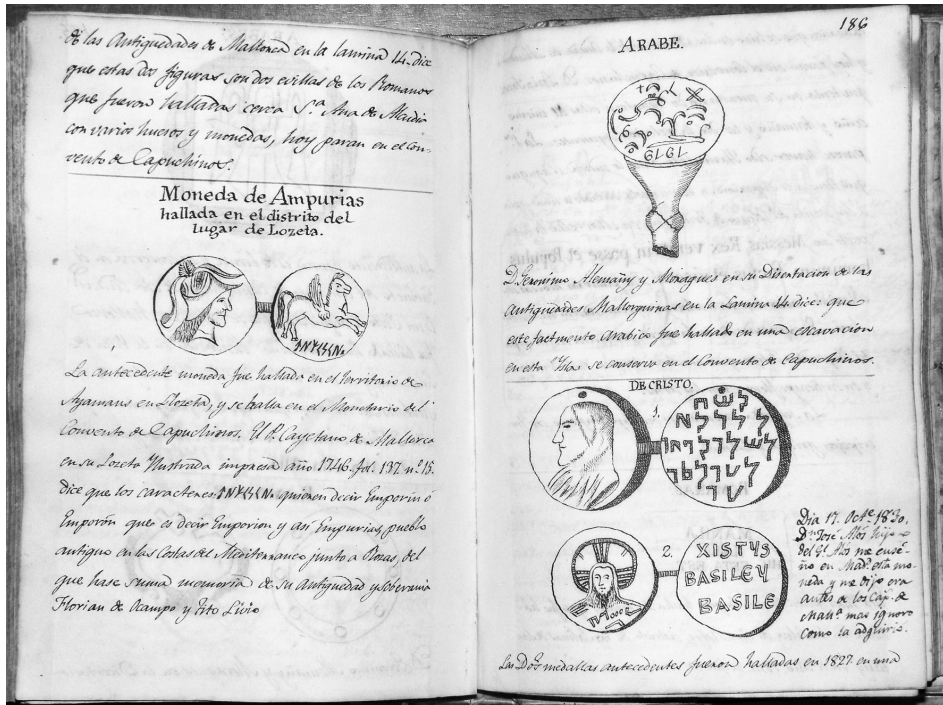 de las Antiguedades de Mallorca en la lamina 14. dice
que estas dos figuras son dos evillas de los Romanos
que fueron halladas cerca Sta. Ana de Mudia
con varios huesos y monedas, hoy paran en el con-
vento de Capuchinos.
Moneda de Ampurias
hallada en el distrito del
lugar de Lozeta.
La antecedente moneda fue hallada en el territorio de
Ayamans en Llozeta, y se halla en el Monetario del
Convento de Capuchinos. El P. Cayetano de Mallorca
en su Lozeta Ylustrada impresa año 1746. fol. 137. nº. 15.
dice que los caracteres quieren decir Emporin ó
Emporón que es decir Emporion y asi Empurias, pueblo
antiguo en las Costas del Mediterraneo junto a Rozas, del
que hase suma memoria de su Antiguedad y soberania
Florian de Ocampo y Tito Livio
186
ARABE.
1919
D. Geronimo Alemañy y Moragues en su Disertacion de las
Antiguedades Mallorquinas en la Lamina 14. dice: que
este facmento Arabico fue hallado en una escavacion
en esta Ysla se conserva en el Convento de Capuchinos.
DE CRISTO.
1.
2.
XISTVS
BASILEY
BASILE
Dia 17. Octe. 1830.
Dn. José
hijo
del me ense-
ño en Madd. esta mo-
neda y me dijo era
antes de los Cap. de
Malla. mas ignoro
como la adquirió.
Las Dos medallas antecedentes fueron halladas en 1827 en una